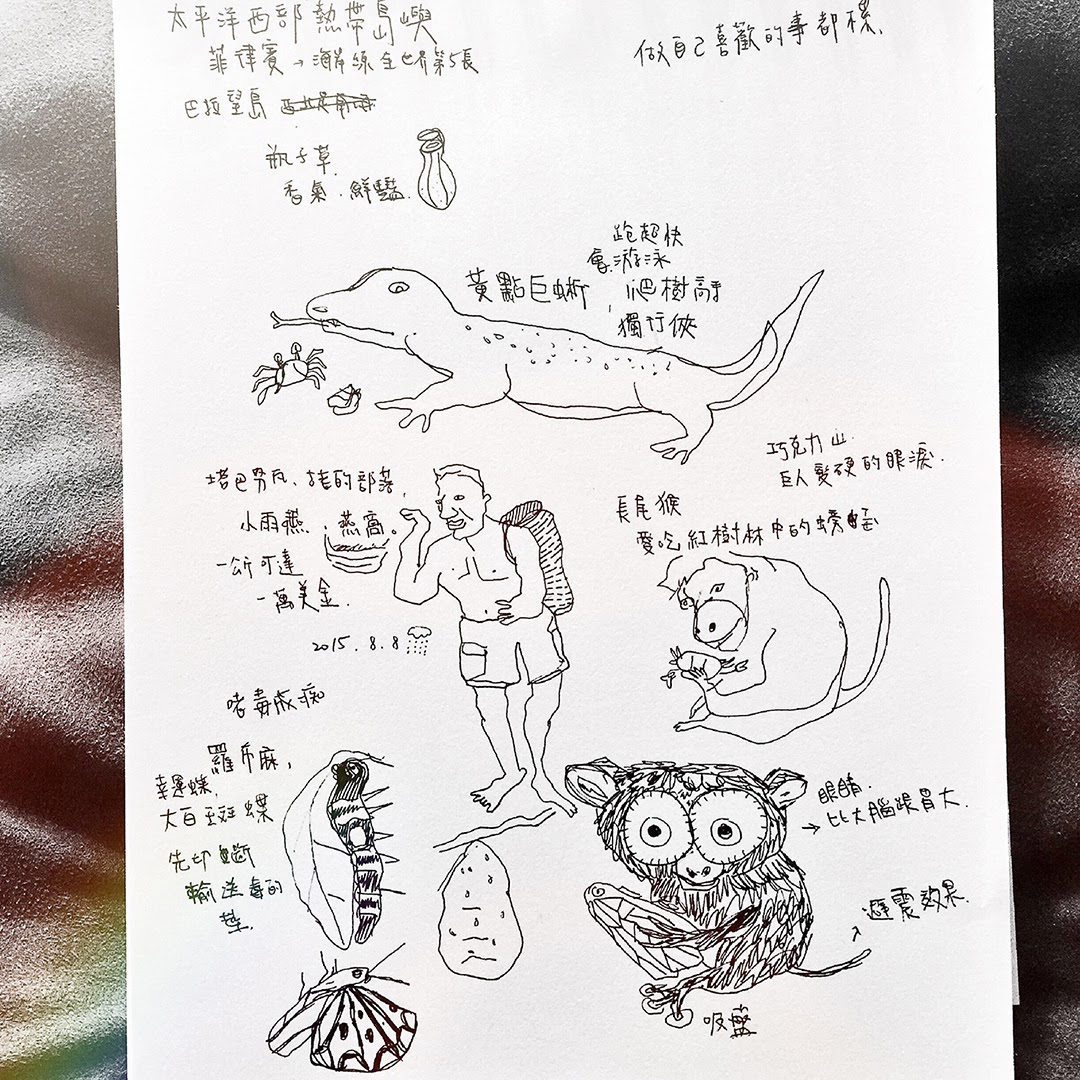 太平洋西部熱帶島嶼
菲律賓→海岸線全世界第5長
做自己喜歡的事都樣.
巴拉望島
瓶子草.
香氣.鮮豔.
跑超快
會游泳
黃點巨蜥
爬樹高手
獨行俠
巧克力山.
巨人變硬的眼淚.
塔巴努瓦.族的部落.
小雨燕.燕窩。
一公斤可達
一萬美金.
2015.8.8
長尾猴
愛吃紅樹林中的螃蟹
嗜毒成痴
羅布麻,
幸運蝶.
大白斑蝶
先切斷
輸送毒的
莖.
眼睛.
→比大腦跟胃大.
避震效果.
吸盤